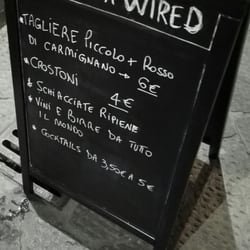 WIRED
• TAGLIERE PICCOLO + ROSSO
DI CARMIGNANO → 6€
• CROSTONI 4€
• SCHIACCIATE RIPIENE
• VINI E BIRRE DA TUTO
IL MONDO
• COCKTAILS DA 3,50€ A 5€